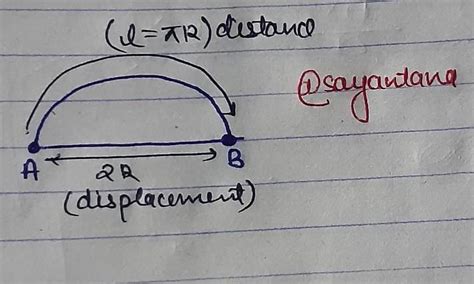 (l=πR) distance
@sayantana
A
2R
B
(displacement)